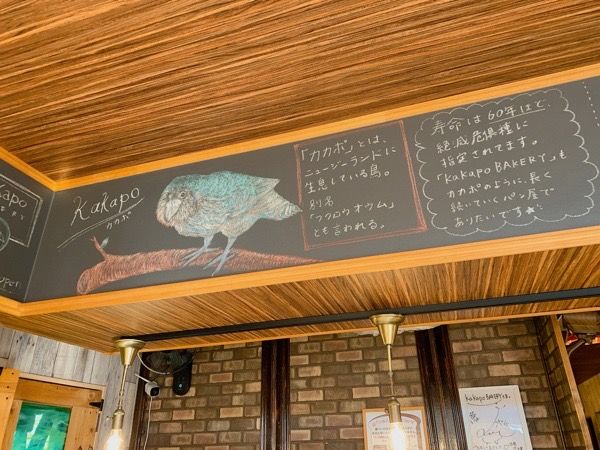 Kakapo
カカポ
「カカポ」とは、
ニュージーランドに
生息している鳥。
別名
「フクロウオウム」
とも言われる。
寿命は60年ほどで、
絶滅危惧種に
指定されてます。
「KaKaPo BAKERY」も
カカポのように、長く
続いていくパン屋で
ありたいです
KaKaPo BAKERY